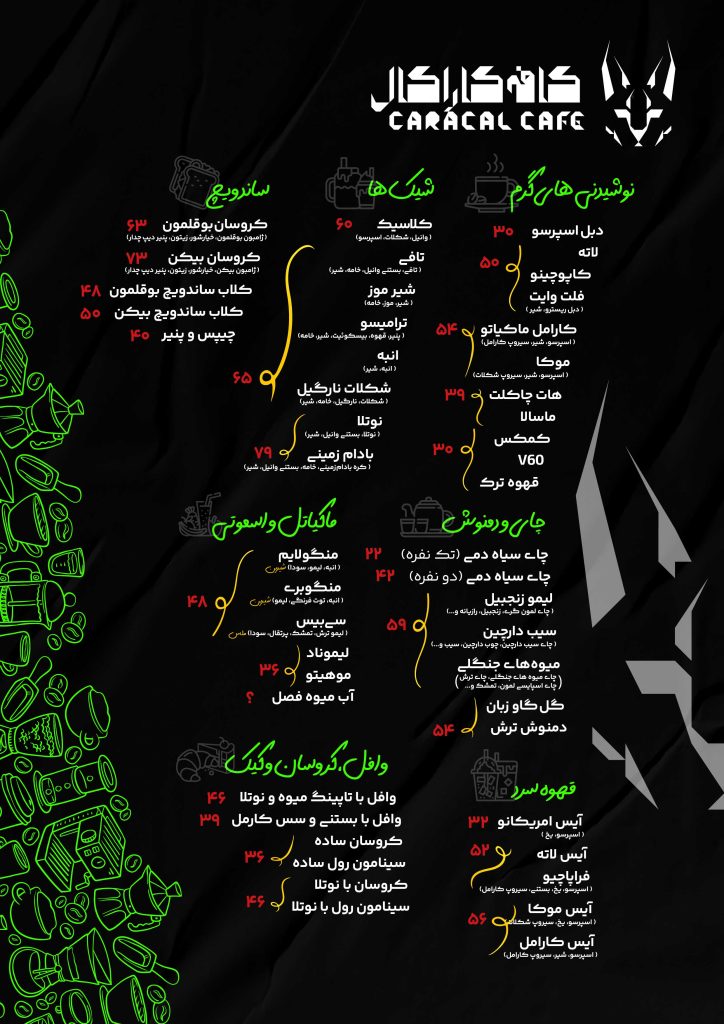 کافه کاراکال
CARACAL CAFE
نوشیدنی های گرم
دبل اسپرسو ۳۰
لاته
کاپوچینو ۵۰
فلت وایت
( دبل ریسترو، شیر )
کارامل ماکیاتو ۵۴
( اسپرسو، شیر، سیروپ کارامل)
موکا
( اسپرسو، شیر، سیروپ شکلات)
هات چاکلت ۳۹
ماسالا
کمکس ۳۰
V60
قهوه ترک
شیک ها
کلاسیک ۶۰
(وانیل، شکلات، اسپرسو)
تافی
( تافی، بستنی وانیل، خامه، شیر)
شیر موز
( شیر، موز، خامه)
ترامیسو
( پنیر، قهوه، بیسکوئیت، شیر، خامه)
انبه
( انبه، شیر)
۶۵
شکلات نارگیل
( شکلات، نارگیل، خامه، شیر)
نوتلا
( نوتلا، بستنی وانیل، شیر)
بادام زمینی ۷۹
( کره بادام‌زمینی، خامه، بستنی وانیل، شیر)
ساندویچ
کروسان بوقلمون ۶۳
( ژامبون بوقلمون، خیارشور، زیتون، پنیر دیپ چدار)
کروسان بیکن ۷۳
( ژامبون بیکن، خیارشور، زیتون، پنیر دیپ چدار)
کلاب ساندویچ بوقلمون ۴۸
کلاب ساندویچ بیکن ۵۰
چیپس و پنیر ۴۰
چای و دمنوش
چای سیاه دمی (تک نفره) ۲۲
چای سیاه دمی (دو نفره) ۴۲
لیمو زنجبیل
( چای لمون گری، زنجبیل، رازیانه و...)
۵۹
سیب دارچین
( چای سیب دارچین، چوب دارچین، سیب و...)
میوه‌های جنگلی
( چای میوه های جنگلی، چای ترش
چای اسپایسی لمون، تمشک و... )
گل گاو زبان
دمنوش ترش ۵۴
ماکیاتل و اسموتی
منگولایم
( انبه، لیمو، سودا) شیرین
منگوبری
( انبه، توت فرنگی، لیمو) شیرین
۴۸
سی‌بیس
( لیمو ترش، تمشک، پرتقال، سودا) ملس
لیموناد
۳۶
موهیتو
آب میوه فصل ؟
قهوه سرد
آیس امریکانو ۳۲
( اسپرسو، یخ )
آیس لاته ۵۲
فراپاچیو
( اسپرسو، یخ، بستنی، سیروپ کارامل)
آیس موکا ۵۶
( اسپرسو، یخ، سیروپ شکلات)
آیس کارامل
( اسپرسو، شیر، سیروپ کارامل)
وافل، کروسان و کیک
وافل با تاپینگ میوه و نوتلا ۴۶
وافل با بستنی و سس کارمل ۳۹
کروسان ساده
۳۶
سینامون رول ساده
کروسان با نوتلا
۴۶
سینامون رول با نوتلا